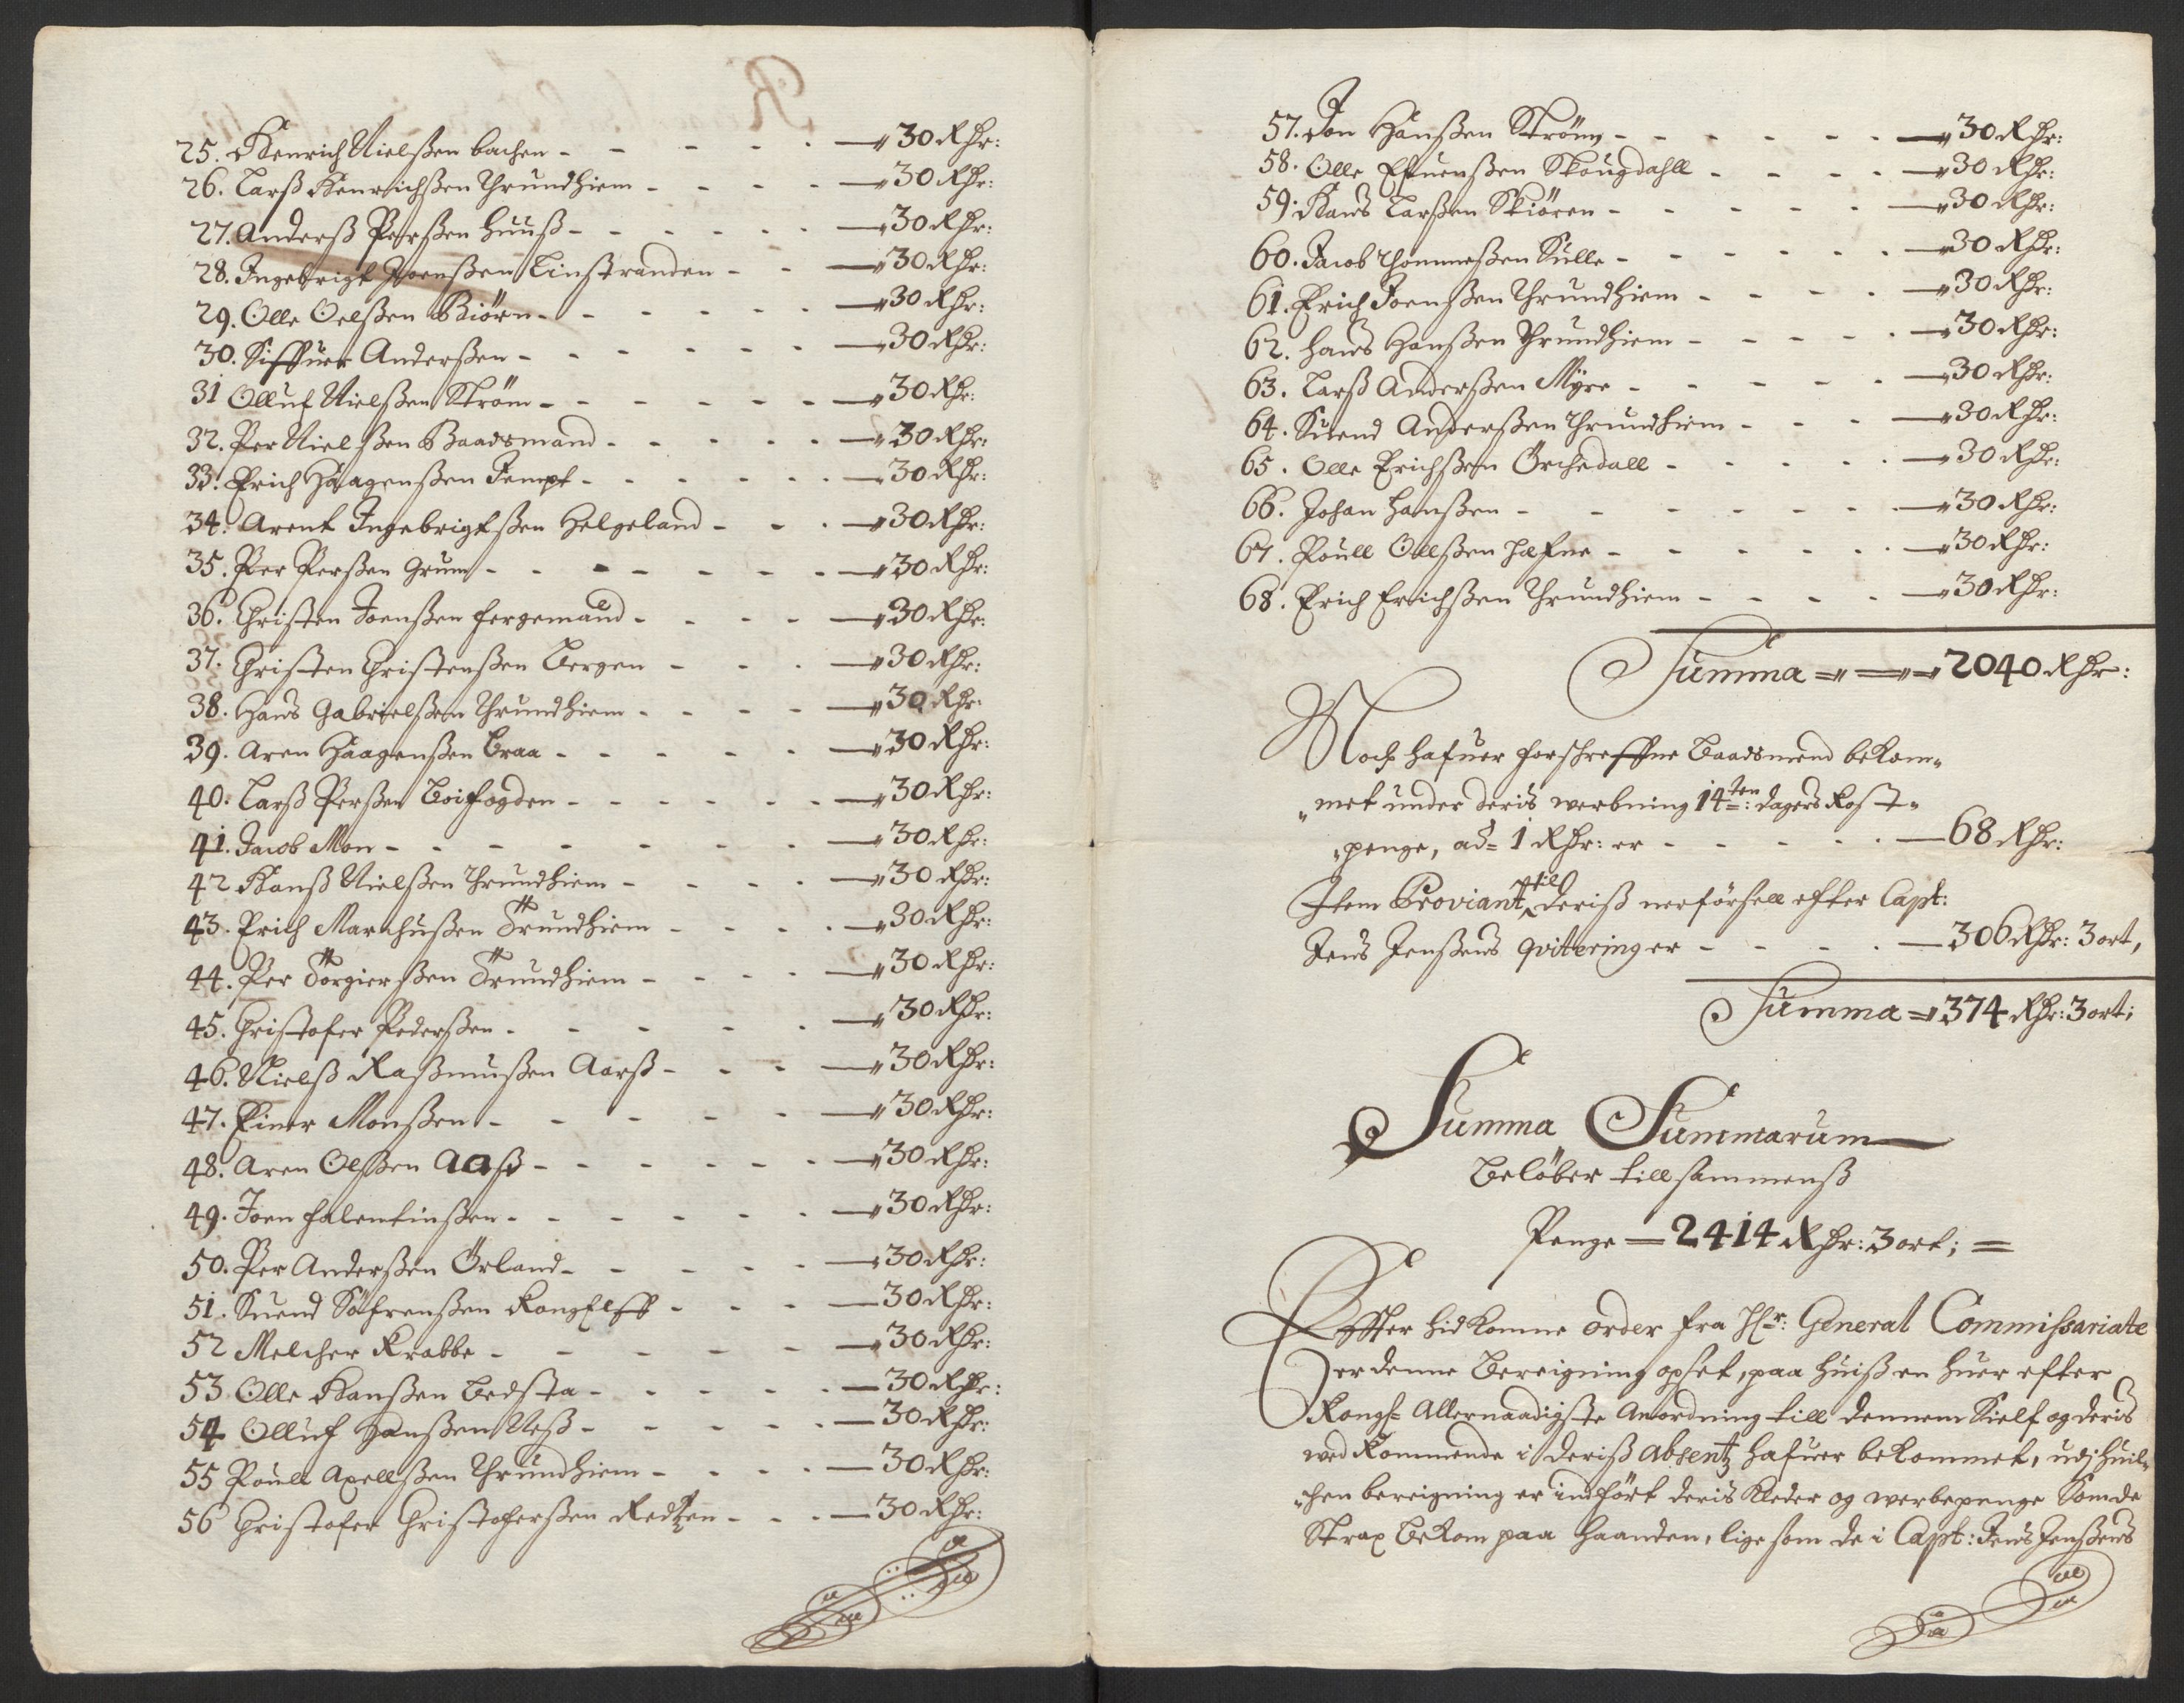 25. Henrich Nielßen bachen - - - - - 30 Rdr:
26. Larß Henrichßen Thrundhiem - - - - 30 Rdr:
27. Anderß Perßen Huuß - - - - - - 30 Rdr:
28. Ingebrigt Joenßen Linstranden - - 30 Rdr:
29. Olle Oelßen Biörn - - - - - - 30 Rdr:
30. Siffuer Anderßen - - - - - - 30 Rdr:
31 Olluf Nielßen Ström - - - - - - 30 Rdr:
32. Per Nielßen Baadsmand - - - - - 30 Rdr:
33. Erich Haagenßen Tempe - - - - - - 30 Rdr:
34. Arent Ingebrigtßen Helgeland - - - 30 Rdr:
35. Per Perßen Grum - - - - - - - 30 Rdr:
36. Christen Joenßen fergemand - - - - 30 Rdr:
37. Christen Christenßen Bergen - - - 30 Rdr:
38. Hans Gabrielßen Thrundhiem - - - - 30 Rdr:
39. Aren Haagenßen Braa - - - - - 30 Rdr:
40. Larß Perßen Boifogden - - - - - - 30 Rdr:
41. Jacob Mon - - - - - - - 30 Rdr:
42 Hanß Nielßen Thrundhiem - - - - 30 Rdr:
43. Erich Marchußen Trundhiem - - - - 30 Rdr:
44. Per Torgierßen Trundhiem - - - - 30 Rdr:
45. Christofer Pederßen - - - - - 30 Rdr:
46. Nielß Raßmußen Aarß - - - 30 Rdr:
47. Einer Monßen - - - - - 30 Rdr:
48. Aren Olßen Aaß - - - - - - 30 Rdr:
49. Joen falentinßen - - - - - - 30 Rdr:
50. Per Anderßen Örland - - - - - 30 Rdr:
51. Suend Söfrenßen Kongelff - - - 30 Rdr:
52 Melcher Krabbe - - - - - 30 Rdr:
53 Olle Hanßen Bedsta - - - - - 30 Rdr:
54 Olluf Hanßen Neß - - - - - 30 Rdr:
55 Poull Axellßen Thrundhiem - - - - 30 Rdr:
56 Christofer Christoferßen Redtzen - - - 30 Rdr:
57. Jon Hanßen Ström - - - - - - 30 Rdr:
58. Olle Efuenßen Skougdahll - - - - 30 Rdr:
59. Hans Larßen Skiören - - - - - 30 Rdr:
60. Jacob Thommeßen Sulle - - - - - - 30 Rdr:
61. Erich Joenßen Thrundhiem - - - - 30 Rdr:
62. Hans Hanßen Thrundhiem - - - - - 30 Rdr:
63. Larß Anderßen Myre - - - - - 30 Rdr:
64. Suend Anderßen Thrundhiem - - - 30 Rdr:
65. Olle Erichßen Örchedall - - - - - 30 Rdr:
66. Johan Hanßen - - - - - - 30 Rdr:
67. Poull Ollßen Hafne - - - - - - 30 Rdr:
68. Erich Erichßen Thrundhiem - - - - 30 Rdr:
Summa 2040 Rdr:
Noch hafuer forschreffne Baadsmend bekom-
met under deris werbning 14ten: dagers Kost-
penge, ad 1 Rdr: er - - - - - 68 Rdr:
Item Proviant till deriß nerförsell efter Capt:
Jens Jenßens qvitering er - - - - 306 Rdr: 3 ort,
Summa 374 Rdr: 3 ort;
Summa Summarum
Belöber till sammenß
Penge = 2414 Rdr: 3 ort; =
Effter hid komne order fra Hr: General Commissariate
er denne Bereigning opset, paa huiß en huer efter
Kongs Allernaadigste Anordning till dennem Sielf og deris
wedkommende i deriß absentz hafuer bekommet, udj huil-
chen bereigning er indfört deris Kleder og werbepenge Som de
Strax bekom paa Haanden, lige som de i Capt: Jens Jenßens